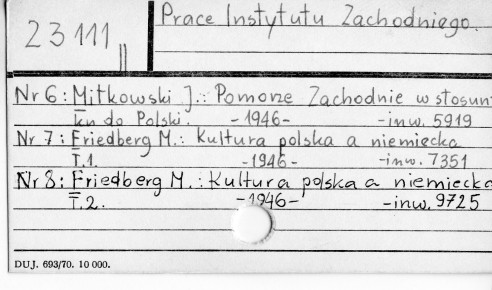 23111
Prace Instytutu Zachodniego.
Nr 6: Mitkowski J.: Pomorze Zachodnie w stosun
ku do Polski. -1946- -inw. 5919
Nr 7: Friedberg M.: Kultura polska a niemiecka
T.1. -1946- -inw. 7351
Nr 8: Friedberg M.: Kultura polska a niemiecka
T.2. -1946- -inw. 9725
DUJ. 693/70. 10 000.